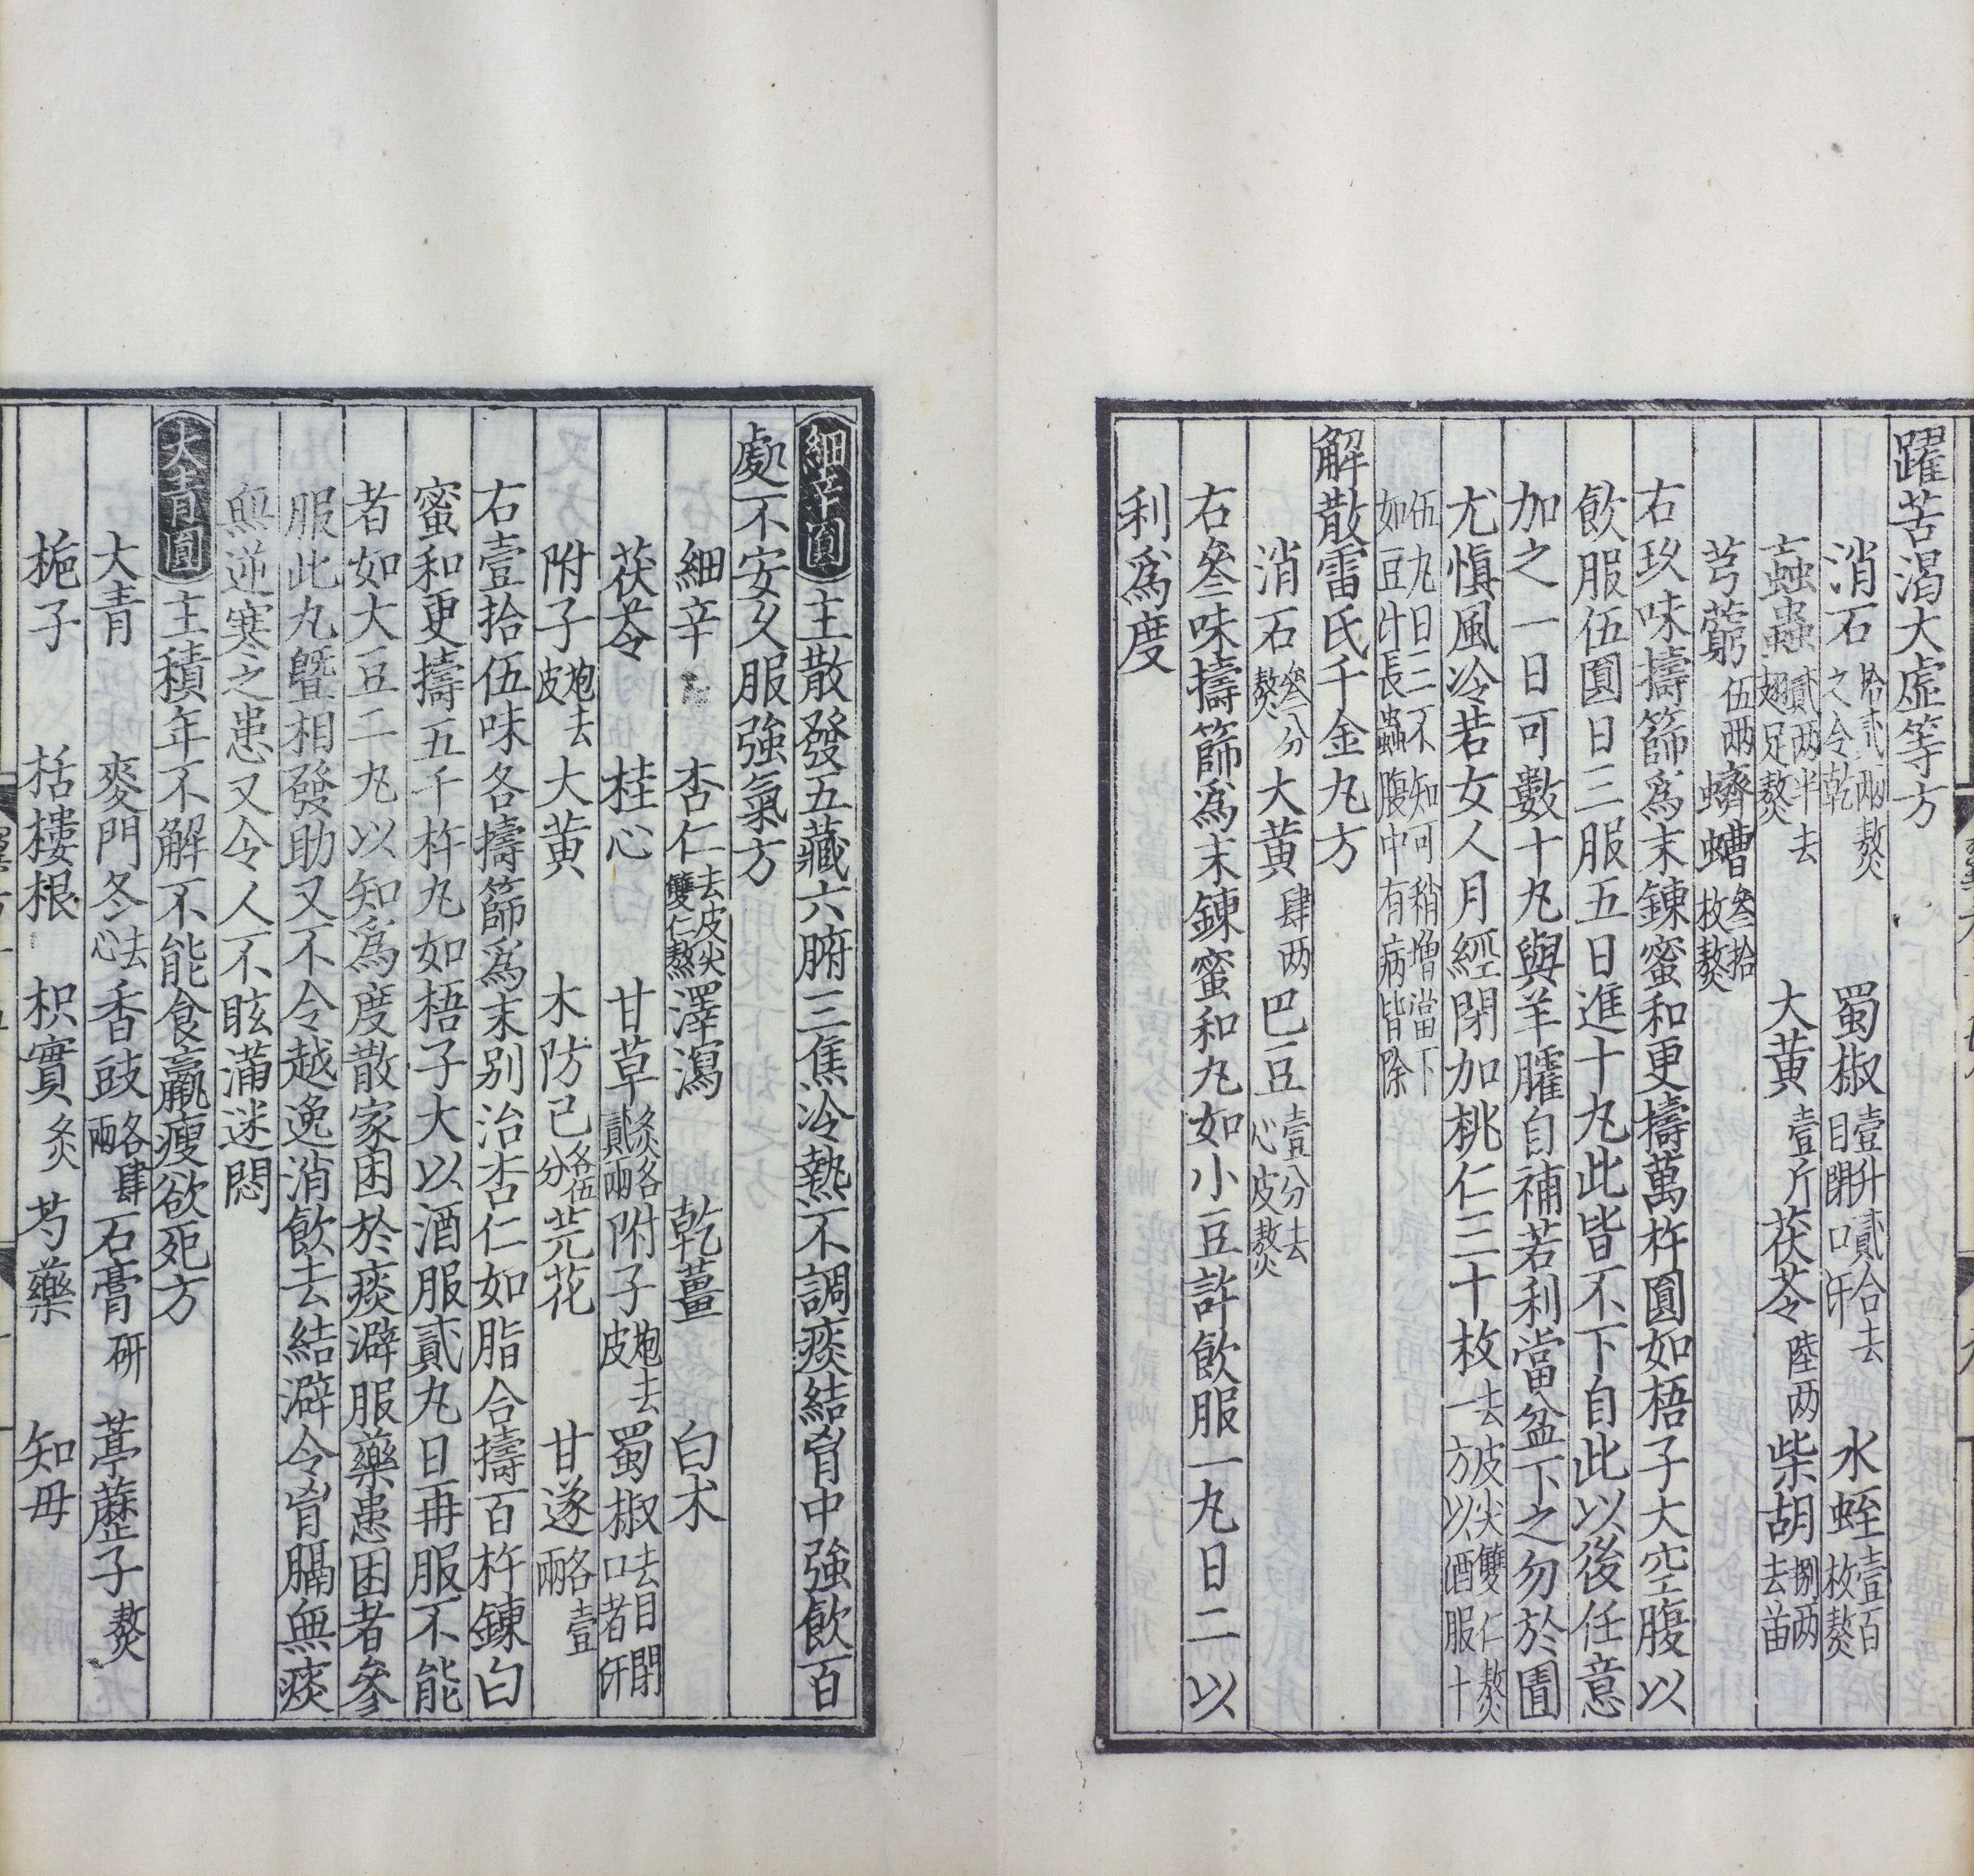 躍苦渴大虛等方
消石拾貳兩熬之令乾 蜀椒壹升貳合去目閉口汗 水蛭壹百枚熬
蝱蟲貳两半去翅足熬 大黃壹斤 茯苓陸两 柴胡捌两去苗
芎藭伍兩 蠐螬叄拾枚熬
右玖味擣篩爲末鍊蜜和更擣萬杵圓如梧子大空腹以
飲服伍圓日三服五日進十丸此皆不下自此以後任意
加之一日可數十丸與羊臛自補若利當盆下之勿於圊
尤慎風冷若女人月經閉加桃仁三十枚去皮尖雙仁熬一方以酒服十
伍丸日三不知可稍增當下如豆汁長蟲腹中有病皆除
解散雷氏千金丸方
消石叄分熬 大黃肆两 巴豆壹分去心皮熬
右叄味擣篩爲末鍊蜜和丸如小豆許飲服一丸日二以
利爲度
細辛圓主散發五藏六腑三焦冷熱不調痰結胷中強飲百
處不安久服強氣方
細辛 杏仁去皮尖雙仁熬 澤瀉 乾薑 白术
茯苓 桂心 甘草炙各貳兩 附子炮去皮 蜀椒去目閉口者汗
附子炮去皮 大黃 木防己各伍分 芫花 甘遂各壹兩
右壹拾伍味各擣篩爲末别治杏仁如脂合擣百杵鍊白
蜜和更擣五千杵丸如梧子大以酒服貳丸日再服不能
者如大豆二丸以知爲度散家困於痰澼服藥患困者參
服此丸曁相發助又不令越逸消飲去結澼令胷膈無痰
無逆寒之患又令人不眩滿迷悶
大青圓主積年不解不能食羸瘦欲死方
大青 麥門冬去心 香豉各肆兩 石膏研 葶藶子熬
梔子 栝樓根 枳實炙 芍藥 知母